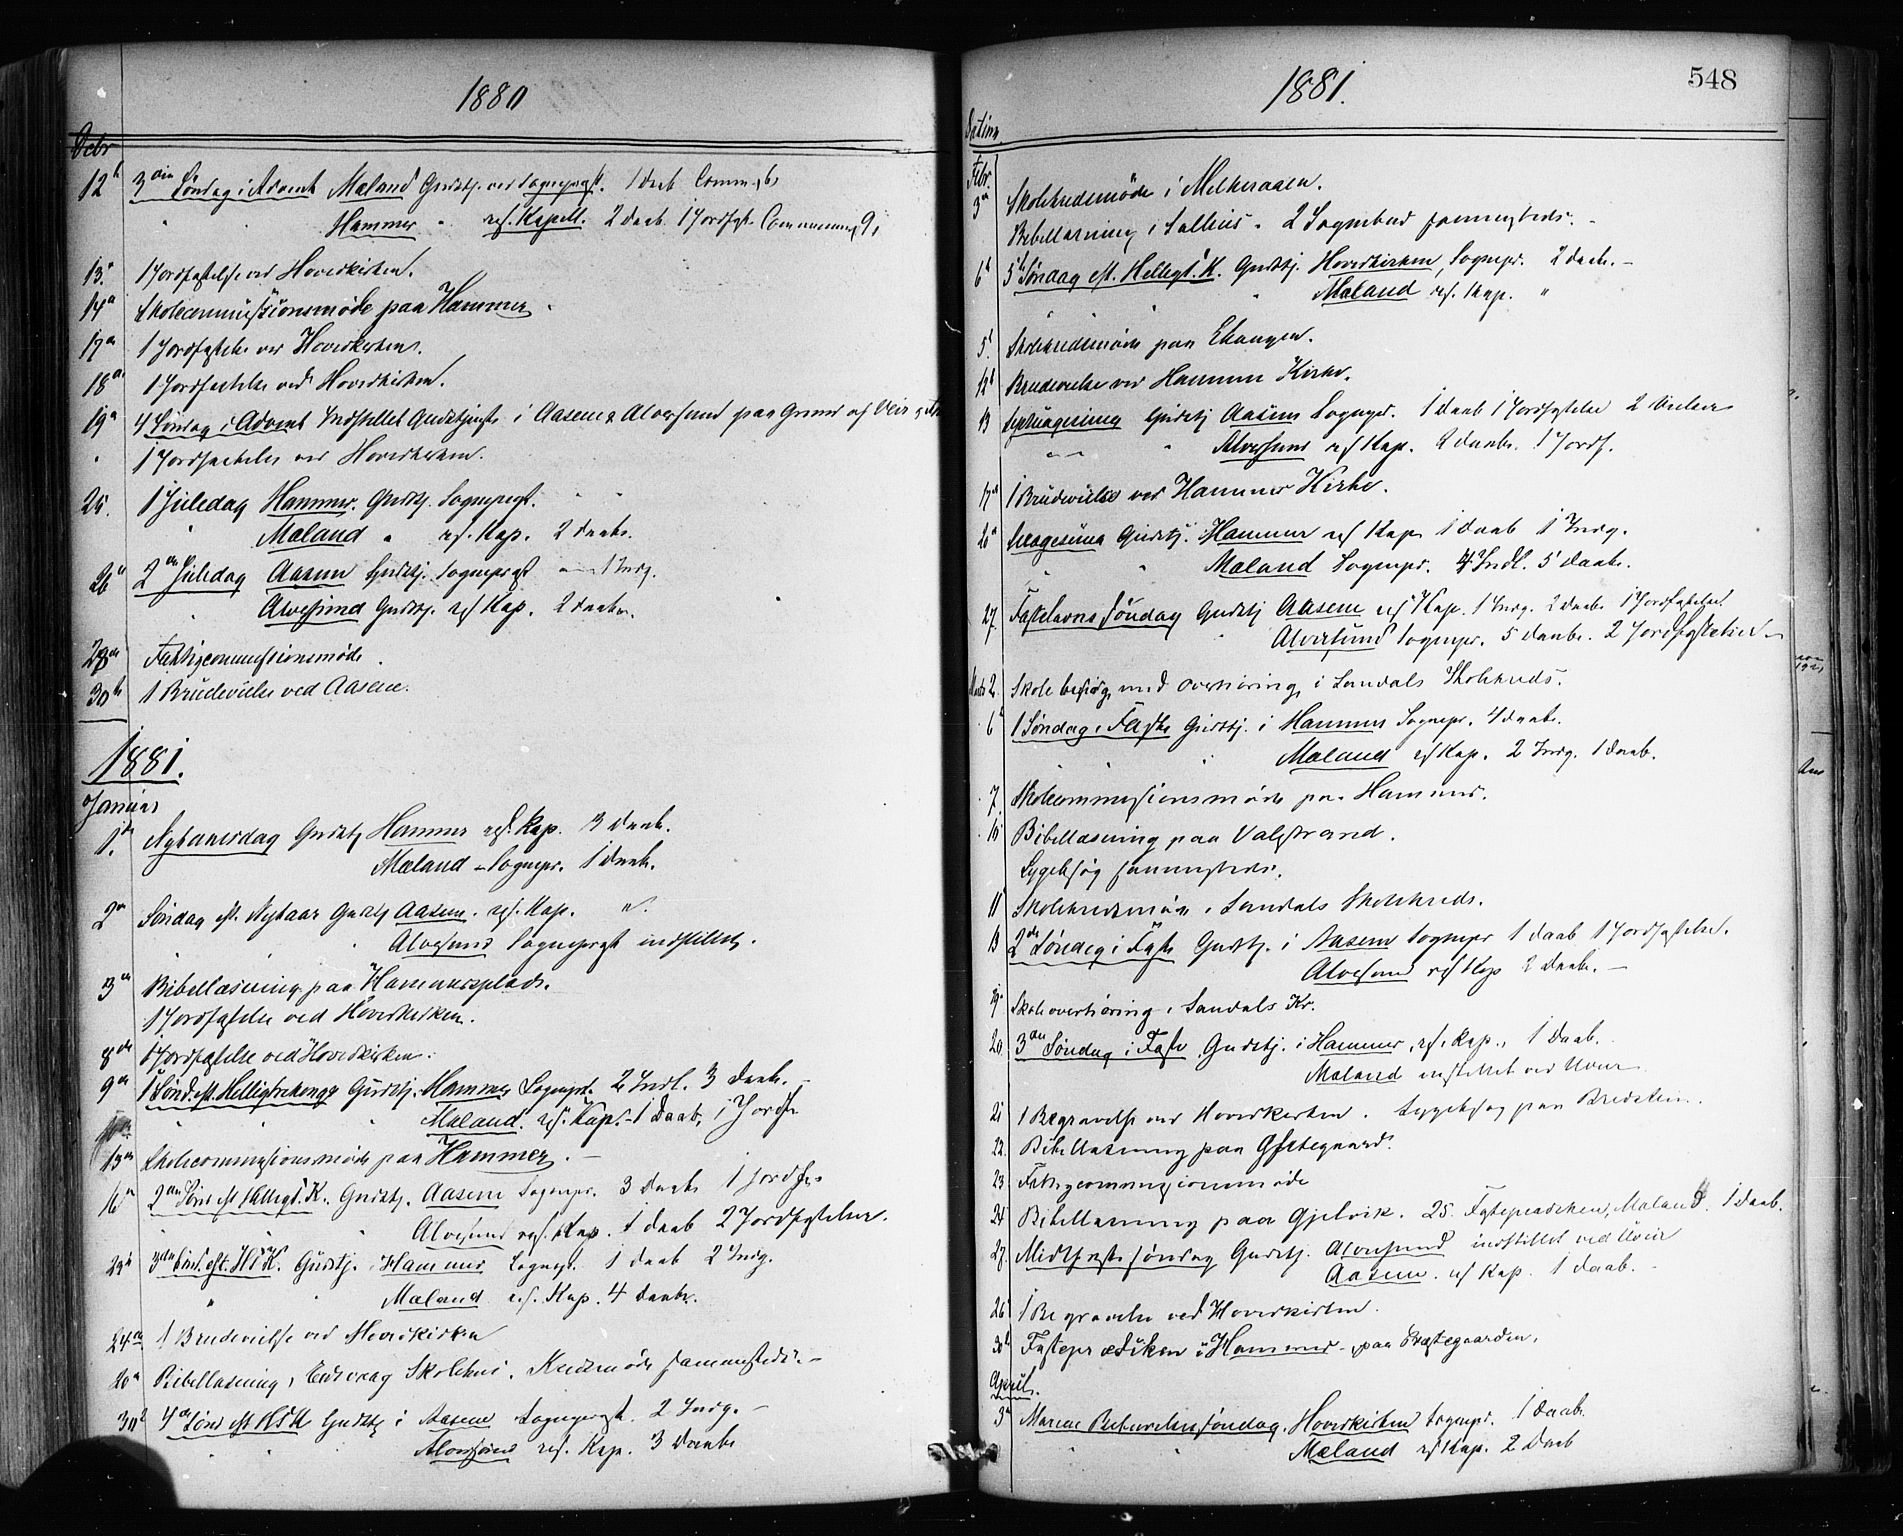 1880
Debr
12t 3die Søndag i Advent Mæland Gudstj. ved Sognepræst. 1 Daab Commun. 6,
" Hammer " res. Kapell. 2 Daab. 1 Jordf. Communion 9,
13. 1 Jordfæstelse ved Hovedkirken.
14 Skolecommissionsmøde paa Hammer.
17 1 Jordfæstelse ved Hovedkirken.
18 1 Jordfæstelse ved Hovedkirken.
19 4 Søndag i Advent Indstillet Gudstjeneste i Aasene & Alversund paa Grund af Veir
" 1 Jordfæstelse ved Hovedkirken.
25. 1 Juledag Hammer. Gudstj. Sognepræst.
Mæland " res. Kap. 2 Daabe.
26 2den Juledag Aasene Gudstj. Sognepræst 1 Indg.
Alversund Gudstj. res. Kap. 2 Daabe.
Fattigcommissionsmøde.
30 1 Brudevielse ved Aasene.
1881.
Januar
1. Nytaarsdag Gudstj Hammer res. Kap. 3 Daab.
Mæland - Sognepr. 1 Daab.
2 Søndag eft. Nytaar Gudstj Aasene. res. Kap. ".
Alversund Sognepræst indstillet.
3 Bibellæsning paa Hammersplads.
1 Jordfæstelse ved Hovedkirken.
8 1 Jordfæstelse ved Hovedkirken.
9 1 Sønd. eft. Helligtrekonge Gudstj. Hammer Sognepr. 2 Indl. 3 Daab.
Mæland. res. Kap. 1 Daab, 1 Jordf.
13 Skolecommissionsmøde paa Hammer.
16 2den Sønd eft Helligt. K. Gudstj. Aasene Sognepr. 3 Daab 1 Jordf.
Alversund res. Kap. 1 Daab 2 Jordfæstelser.
23 3die Sønd. eft. H. 3 K. Gudstj. Hammer Sognepr. 1 Daab 2 Indg.
" Mæland res. Kap. 4 Daabe.
24 1 Brudevielse ved Hovedkirken
Bibellæsning, Skolehus. Kredsmøde sammesteds.
30 4de Sønd eft H 3 K Gudstj i Aasene Sognepræst. 2 Indg.
Alversund res. Kap. 3 Daabe
1881.
548
Datum.
Febr.
3 Skolekredsmøde i Melkeraaen.
Bibellæsning i 2 Sognebud sammesteds.
6 5te Søndag eft. Helligt. K. Gudstj. Hovedkirken, Sognepr. 2 Daabe.
" Mæland res. Kap. "
5 Skolekredsmøde paa
12 Brudevielse ved Hammer Kirke.
13 Septuagesima Gudstj Aasene Sognepr. 1 Daab 1 Jordfæstelse 2 Vielser
" Alversund res Kap. 2 Daabe. 1 Jordf.
17 1 Brudevielse ved Hammer Kirke.
20 Sexagesima Gudstj. Hammer res Kap 1 Daab 1 Indg.
" Mæland Sognepr. 4 Indl. 5 Daabe.
27. Fastelavns søndag Gudstj Aasene res Kap. 1 Indg. 2 Daabe 1 Jordfæstelse
Alversund Sognepr. 5 Daabe. 2 Jordfæstelser
Marts 2. Skole besøg med Overhøring i Sandals Skolekreds.
6 1 Søndag i Faste Gudstj. i Hammer Sognepr. 4 Daabe.
Mæland res Kap. 2 Indg. 1 Daab.
7. Skolecommissionsmøde paa Hammer.
10 Bibellæsning paa Valestrand.
Sygebesøg sammesteds.
11 Skolekredsmøde i Sandals Skolekreds.
13 2den Søndag i Faste Gudstj. i Aasene Sognepr 1 Daab 1 Jordfæstelse.
Alversund res Kap 2 Daabe.
19 Skoleoverhøring i Sandals Kr.
20 3die Søndag i Faste Gudstj. i Hammer, res. Kap., 1 Daab.
Mæland indstillet ved Uveir
21 1 Begravelse ved Hovedkirken. Sygebesøg paa Bredstein.
22. Bibellæsning paa
23 Fattigcommissionsmøde
24 Bibellæsning paa Gjelvik. 25. Fasteprædiken, Mæland. 1 Daab.
27. Midtfastesøndag Gudstj. Alversund indstillet ved Uveir
Aasene. res Kap. 1 Daab.
26 1 Begravelse ved Hovedkirken.
30 Fasteprædiken i Hammer - paa Præstegaarden.
April.
3 Mariæ Bebudelsessøndag. Hovedkirken Sognepr. 1 Daab.
" Mæland res Kap. 2 Daab